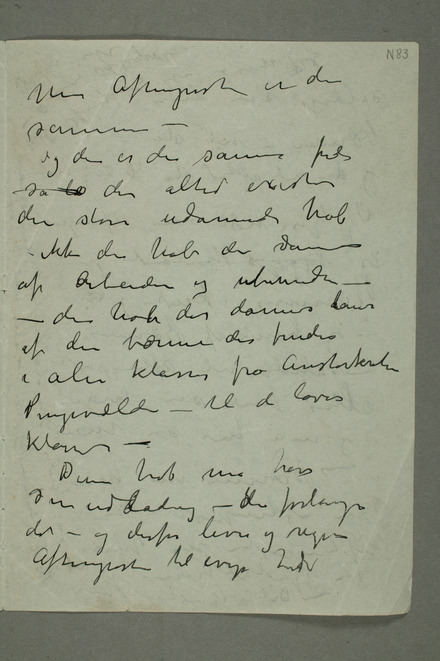 N 83
Men Aftenposten er den
samme —
og den er den samme fordi
den altid existerer
den store udannede hob
– ikke den hob der dannes
af Arbeiden og ubemidle —
— den hob der dannes bare
af den bærme der findes
i alle klasser fra Aristokrater
Pengevælde — til de lavere
Klasser —
Denne hob må have
sin udladning — den forlanger
det — og derfor lever og regjer
Aftenposten til evige tider